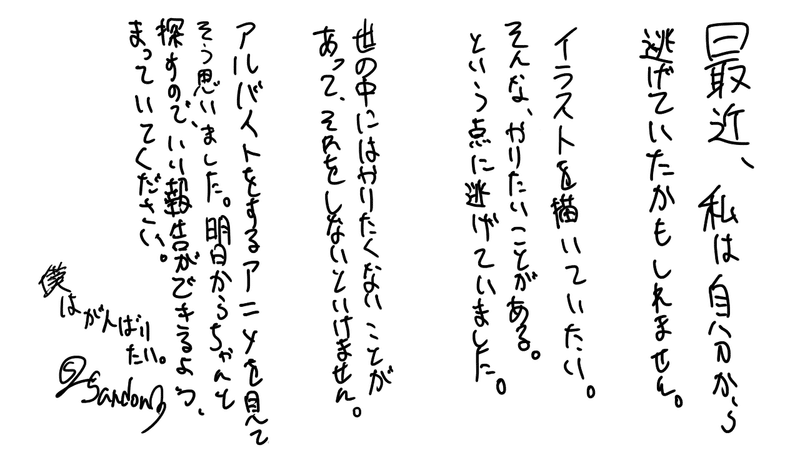 最近、私は自分から
逃げていたかもしれません。
イラストを描いていたい。
そんな、やりたいことがある。
という点に逃げていました。
世の中にはやりたくないことが
あって、それをしないといけません。
アルバイトをするアニメを見て
そう思いました。明日からちゃんと
探すので、いい報告ができるよう、
まっていてください。
僕はがんばり
たい。
Sandom